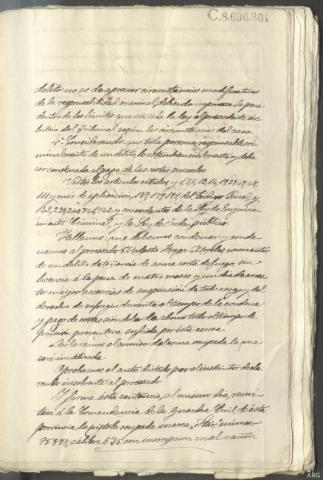 C.8.690.801
delito no es de apreciar circunstancias modificativas
de la responsabilidad criminal, debiendo imponerse la pena
dentro de los límites que señala la ley al prudente ar-
bitrio del Tribunal según las circunstancias del caso
4º Considerando, que toda persona responsable cri-
minalmente de un delito, lo es también civilmente, y debe
ser condenada al pago de las costas procesales
Vistos los artículos citados y
111 y mas de aplicación del Código Penal, y
142, 239, 240, 741, 742 y concordantes de la Ley de Enjuicia-
miento Criminal, y la Ley de Orden público
Fallamos, que debemos condenar y conde-
namos al procesado como autor
de un delito de tenencia de arma corta de fuego sin
licencia a la pena de cuatro meses y un día de arres-
to mayor, accesorias de suspensión de todo cargo y del
derecho de sufragio durante el tiempo de la condena
y pago de costas siéndole de abono todo el tiempo de
prisión preventiva sufrida por esta causa
Se decreta el comiso del arma ocupada la que
será inutilizada
Aprobamos el auto dictado por el instructor decla-
rando insolvente al procesado
Y firme esta sentencia, al mismo día, remí-
tase a la Comandancia de la Guardia Civil de esta
provincia la pistola ocupada marca número
75.848, calibre 6,35 con inscripción
ARG